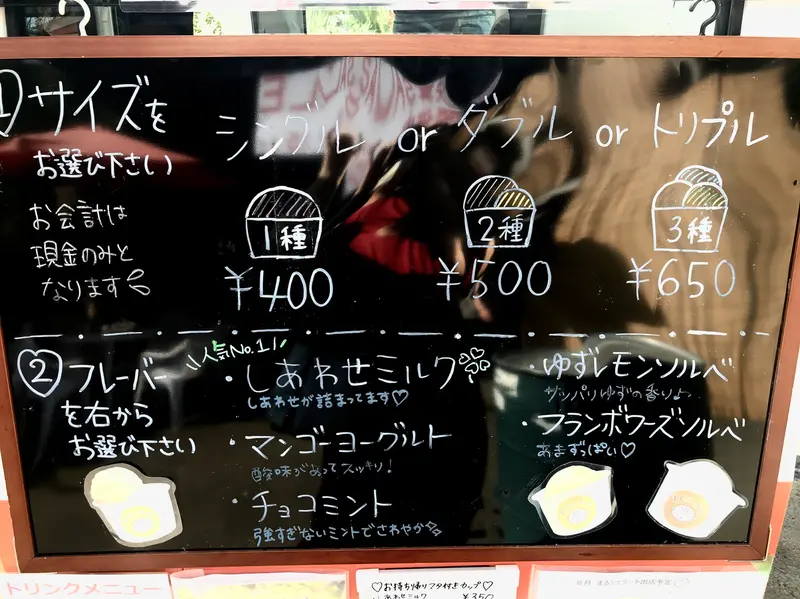 ①サイズを
お選び下さい
お会計は
現金のみと
なります
シングル or ダブル or トリプル
1種
2種
3種
¥400
¥500
¥650
②フレーバー
を右から
お選び下さい
人気No.1!
・しあわせミルク
しあわせが詰まってます♡
・マンゴーヨーグルト
酸味があってスッキリ!
・チョコミント
強すぎないミントでさわやか
・ゆずレモンソルベ
サッパリゆずの香り♪
・フランボワーズソルベ
あまずっぱい♡
ドリンクメニュー
♡お持ち帰りフタ付きカップ♡
しあわせミルク ¥350